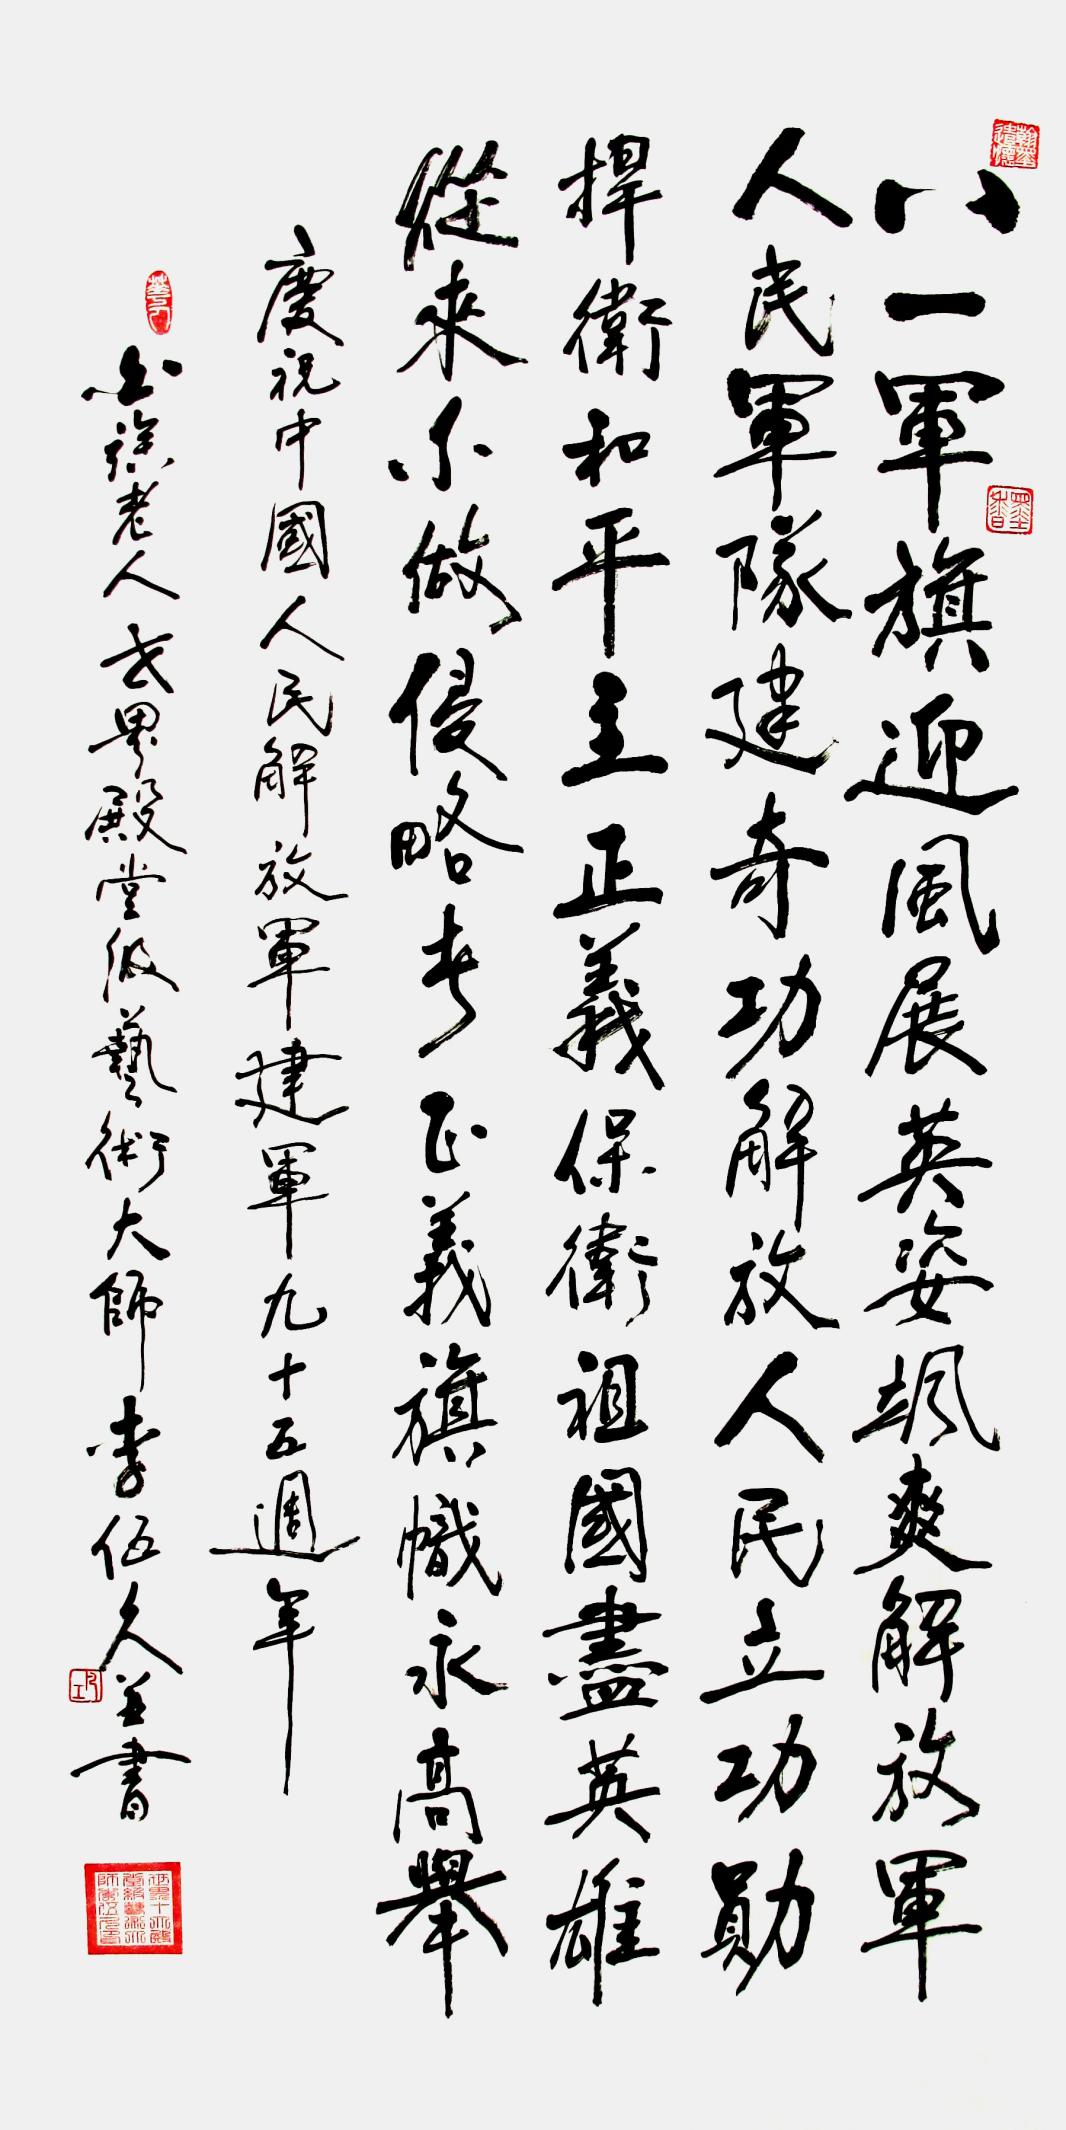 八一軍旗迎風展英姿颯爽解放軍
人民軍隊建奇功解放人民立功勛
捍衛和平主正義保衛祖國盡英雄
從來不做侵略者正義旗幟永高舉
慶祝中國人民解放軍建軍九十五週年
老人世界殿堂級藝術大師李伍久並書
墨香